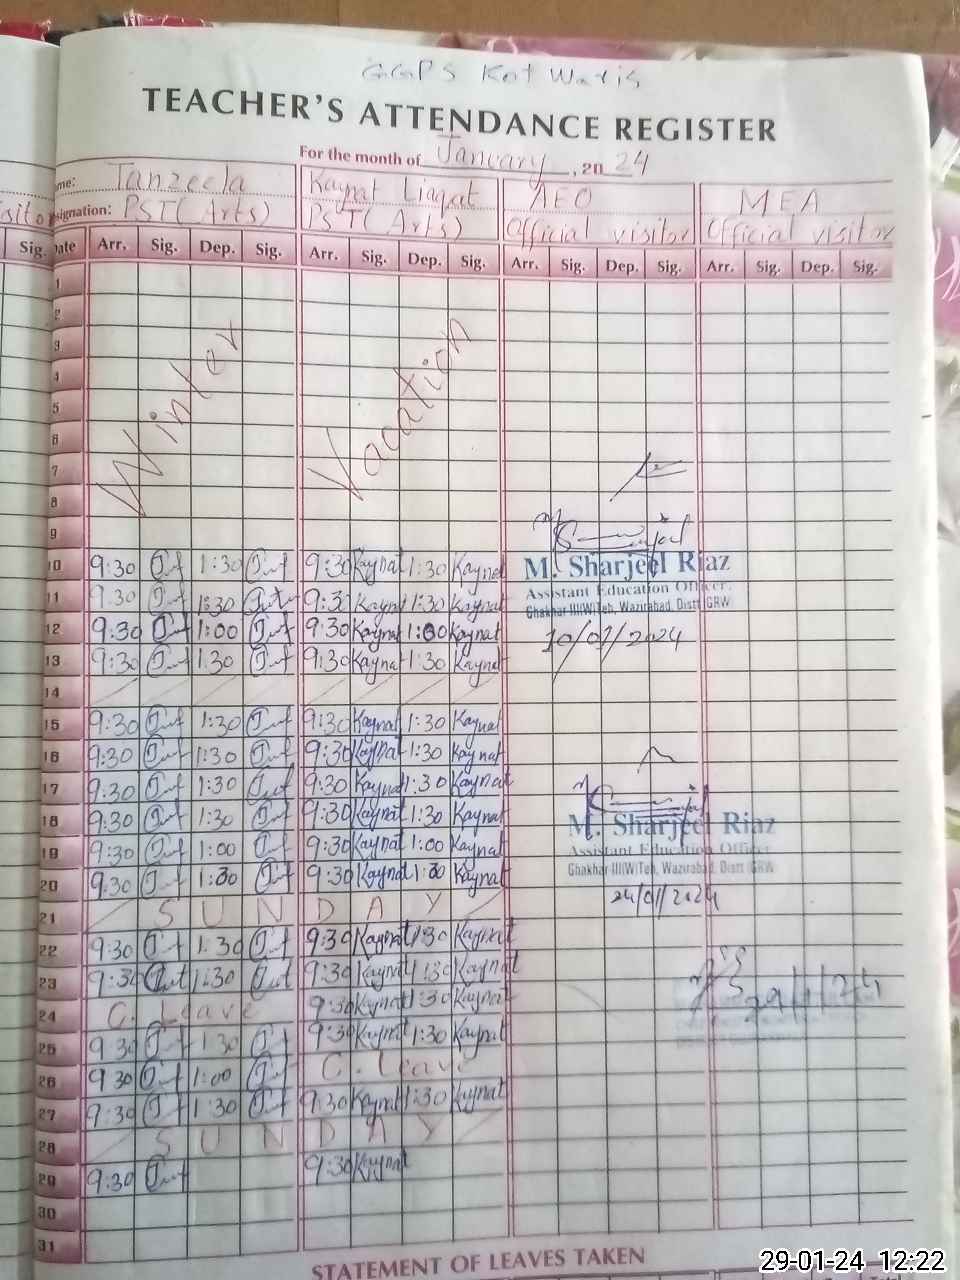 GGPS Kot Waris
TEACHER'S ATTENDANCE REGISTER
For the month of January, 2024
me: Tanzeela Kaynat Liaqat AEO MEA
signation: PST (Arts) PST (Arts) Official visitor Official visitor
Sig. ate Arr. Sig. Dep. Sig. Arr. Sig. Dep. Sig. Arr. Sig. Dep. Sig. Arr. Sig. Dep. Sig.
1
2
3
4
5
6
7
8
9
Winter Vacation
10 9:30 1:30 9:30 Kaynat 1:30 Kaynat
M. Sharjeel Riaz
11 9:30 1:30 9:30 Kaynat 1:30 Kaynat
Assistant Education Officer
Ghakhar-III(W)Teh, Wazirabad, Distt GRW
12 9:30 1:00 9:30 Kaynat 1:00 Kaynat
10/01/2024
13 9:30 1:30 9:30 Kaynat 1:30 Kaynat
14
15 9:30 1:30 9:30 Kaynat 1:30 Kaynat
16 9:30 1:30 9:30 Kaynat 1:30 Kaynat
17 9:30 1:30 9:30 Kaynat 1:30 Kaynat
18 9:30 1:30 9:30 Kaynat 1:30 Kaynat
M. Sharjeel Riaz
19 9:30 1:00 9:30 Kaynat 1:00 Kaynat
Assistant Education Officer
Ghakhar-III(W)Teh, Wazirabad, Distt GRW
20 9:30 1:30 9:30 Kaynat 1:30 Kaynat
24/01/2024
21 SUNDAY
22 9:30 1:30 9:30 Kaynat 1:30 Kaynat
23 9:30 1:30 9:30 Kaynat 1:30 Kaynat
24 C. Leave 9:30 Kaynat 1:30 Kaynat
29/1/24
25 9:30 1:30 9:30 Kaynat 1:30 Kaynat
26 9:30 1:00 C. Leave
27 9:30 1:30 9:30 Kaynat 1:30 Kaynat
28 SUNDAY
29 9:30 9:30 Kaynat
30
31
STATEMENT OF LEAVES TAKEN
29-01-24 12:22